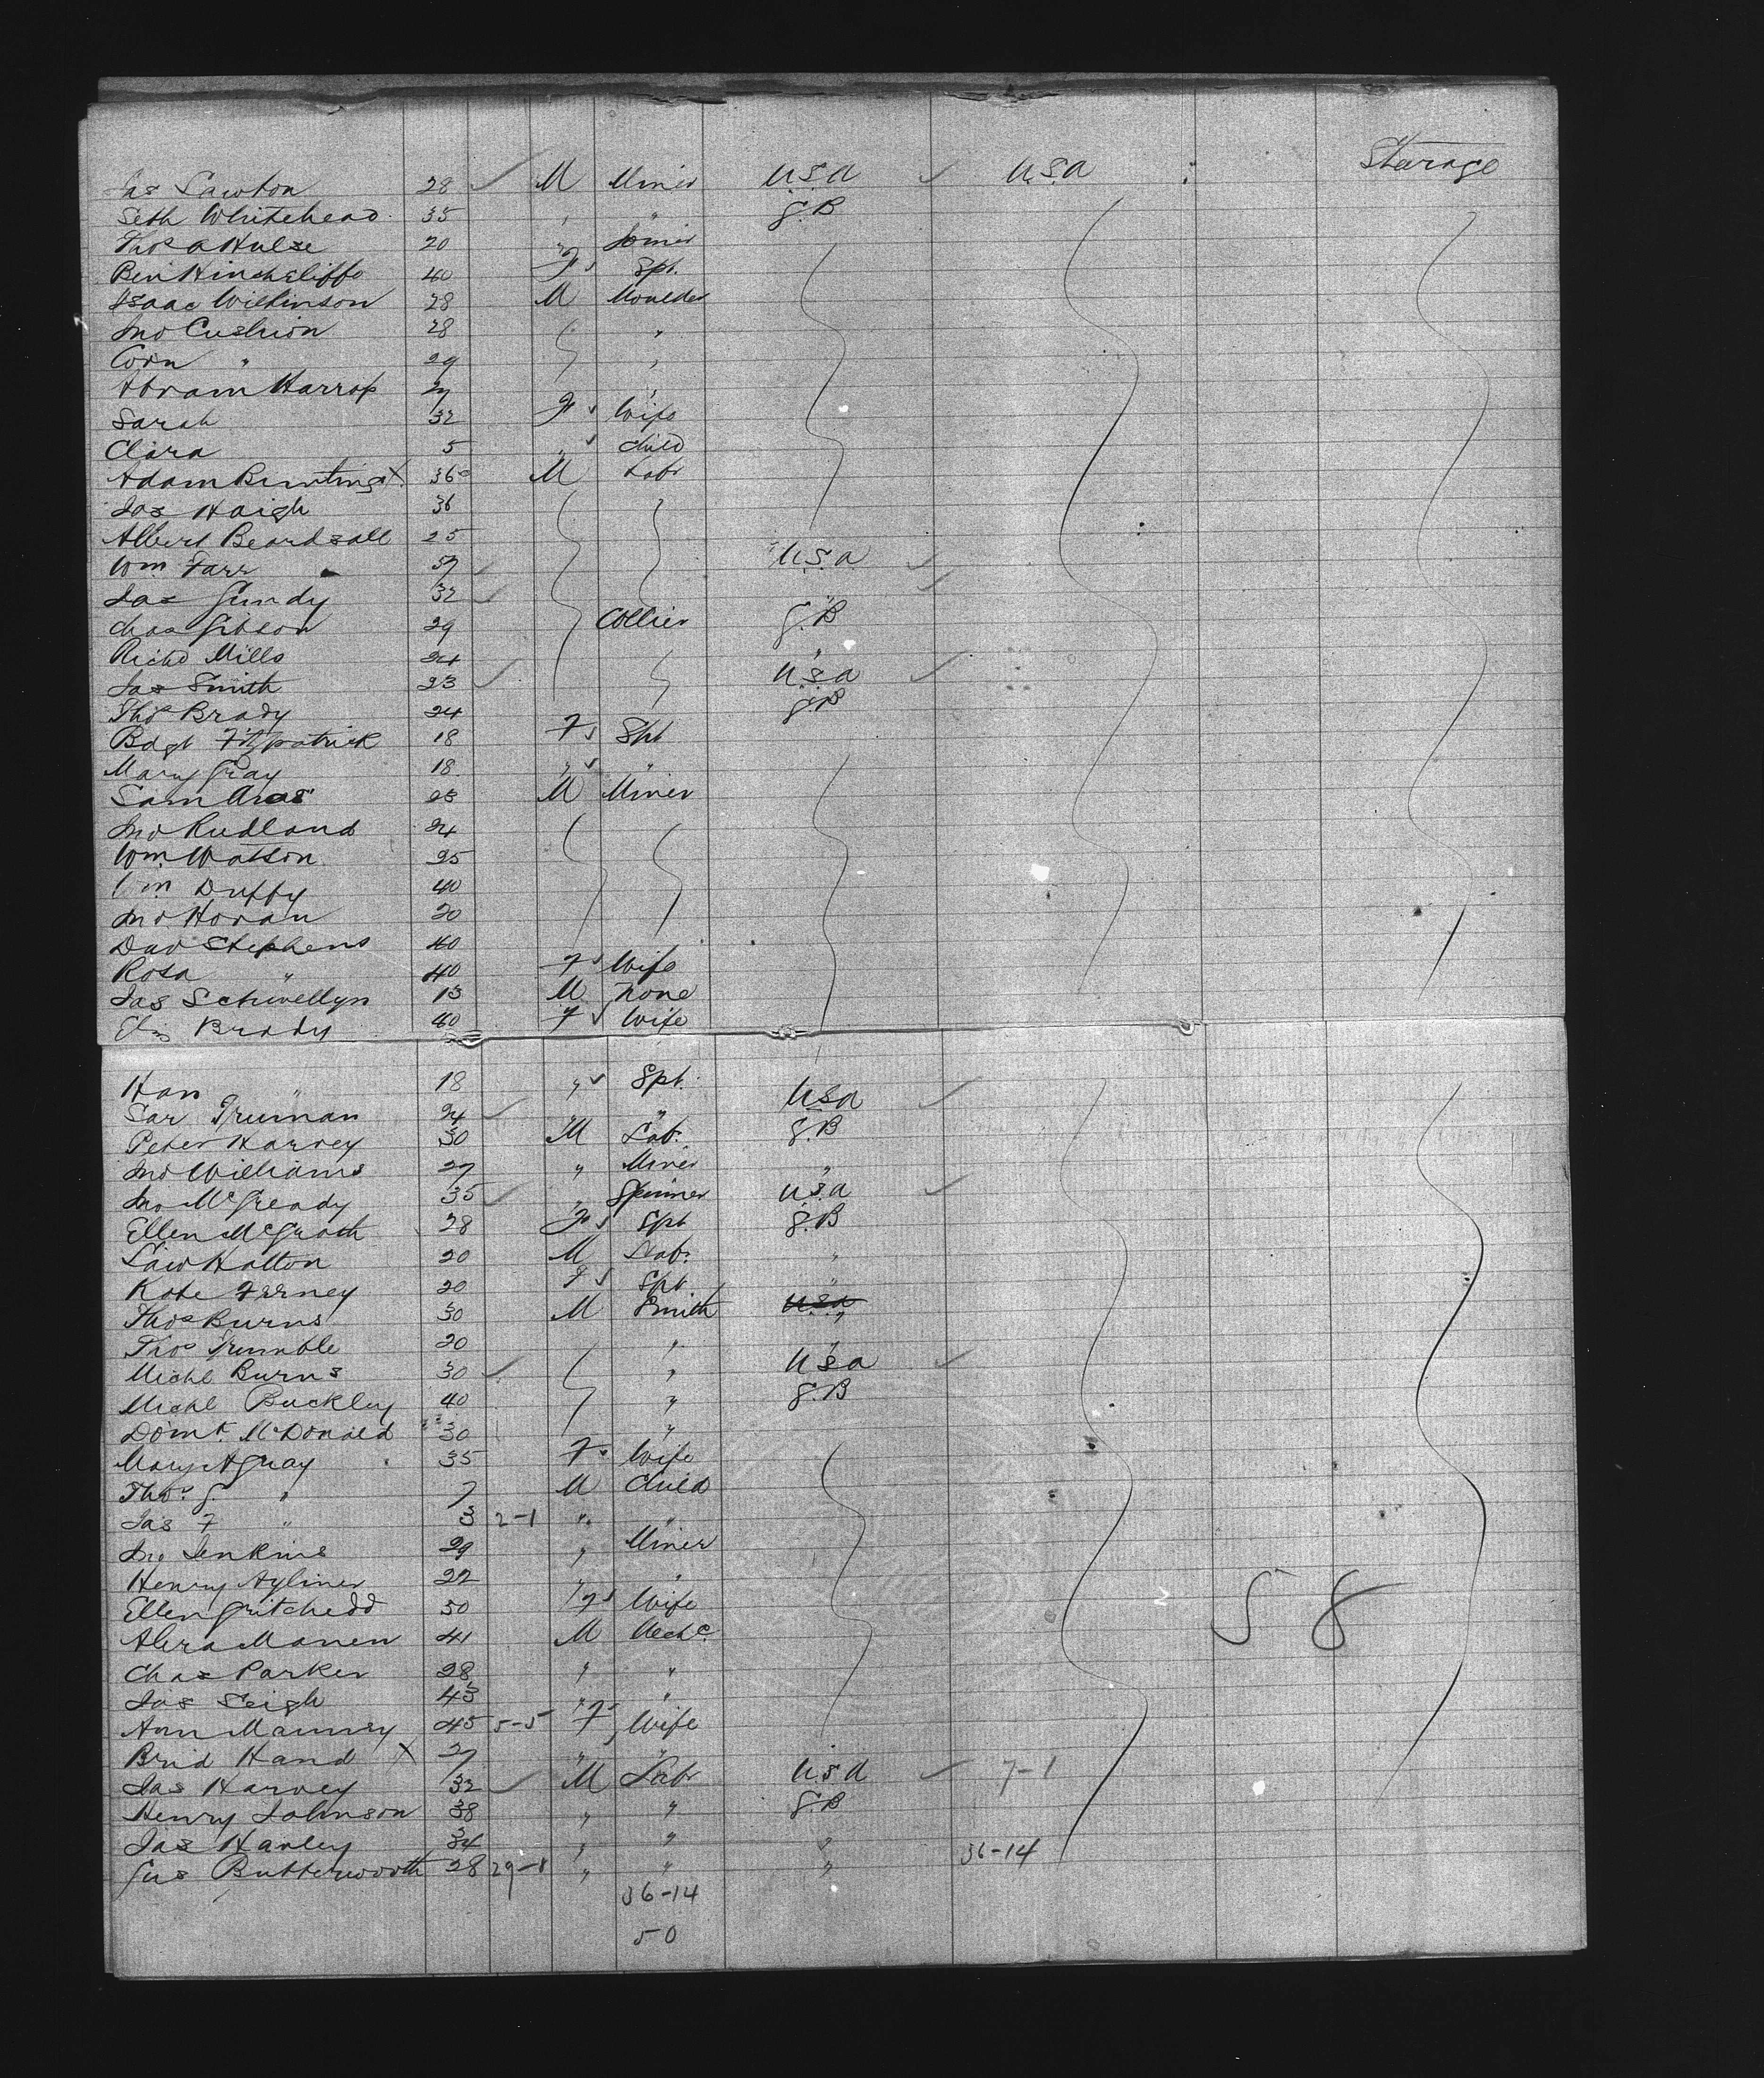 Jas Lawton 28 ✓ M Miner U.S.A ✓ U.S.A Steerage
Seth Whitehead 35 " " G.B
Thos A Hulse 20 " Joiner
Ben Hinchcliffe 40 F ✓ Spt.
Isaac Wilkinson 28 M Moulder
Jno Cushion 28 "
Corn " 29 "
Abram Harrop 29 "
Sarah 32 F ✓ Wife
Clara 5 " ✓ Child
Adam Bunting X 36 M Labr
Jas Haigh 36
Albert Beardsall 25
Wm Farr ✓ U.S.A ✓
Jas Gundy 32 ✓ ✓
Chas Gibson 29 Collier G.B
Richd Mills 24 "
Jas Smith 23 ✓ U.S.A ✓
Thos Brady 24 G.B
Bdgt Fitzpatrick 18 F ✓ Spt
Mary Gray 18 " ✓ "
Sam 23 M Miner
Jno Rudland 24
Wm Watson 25
Wm Duffy 40
Jno Horan 20
Dav Stephens 40
Rosa " 40 F ✓ Wife
Jas 13 M None
Elz Brady 40 F ✓ Wife
Han " 18 " ✓ Spt.
Sar Truman 24 ✓ " " USA ✓
Peter Harvey 30 M Lab. G.B
Jno Williams 27 " Miner "
Jno McGready 35 ✓ " Spinner U.S.A ✓
Ellen McGrath 28 F ✓ Spt G.B
Law Hatton 20 M Lab. "
Kate 20 F ✓ Spt "
Thos Burns 30 M Smith U.S.A "
Thos Trumble 20 " "
Michl Burns 30 ✓ " U.S.A ✓
Michl Buckley 40 " G.B
Domk. McDonald 30 "
Mary A Gray 35 F Wife
Thos. G. " 7 M Child
Jas F " 3 2-1 " "
Jno Jenkins 29 " Miner
Henry Aylmer 22 " "
Ellen 50 F ✓ Wife
41 M Mechc.
Chas Parker 28 " "
Jas Leigh 43 " "
Ann 45 5-5 F Wife
Brid Hand X 27 " "
Jas Harvey 32 ✓ M Labr U.S.A ✓ 7-1
Henry Johnson 38 " " G.B
Jas Hanley 34 " " " 36-14
Gus Butterworth 28 29-8 " " "
36-14
50
58